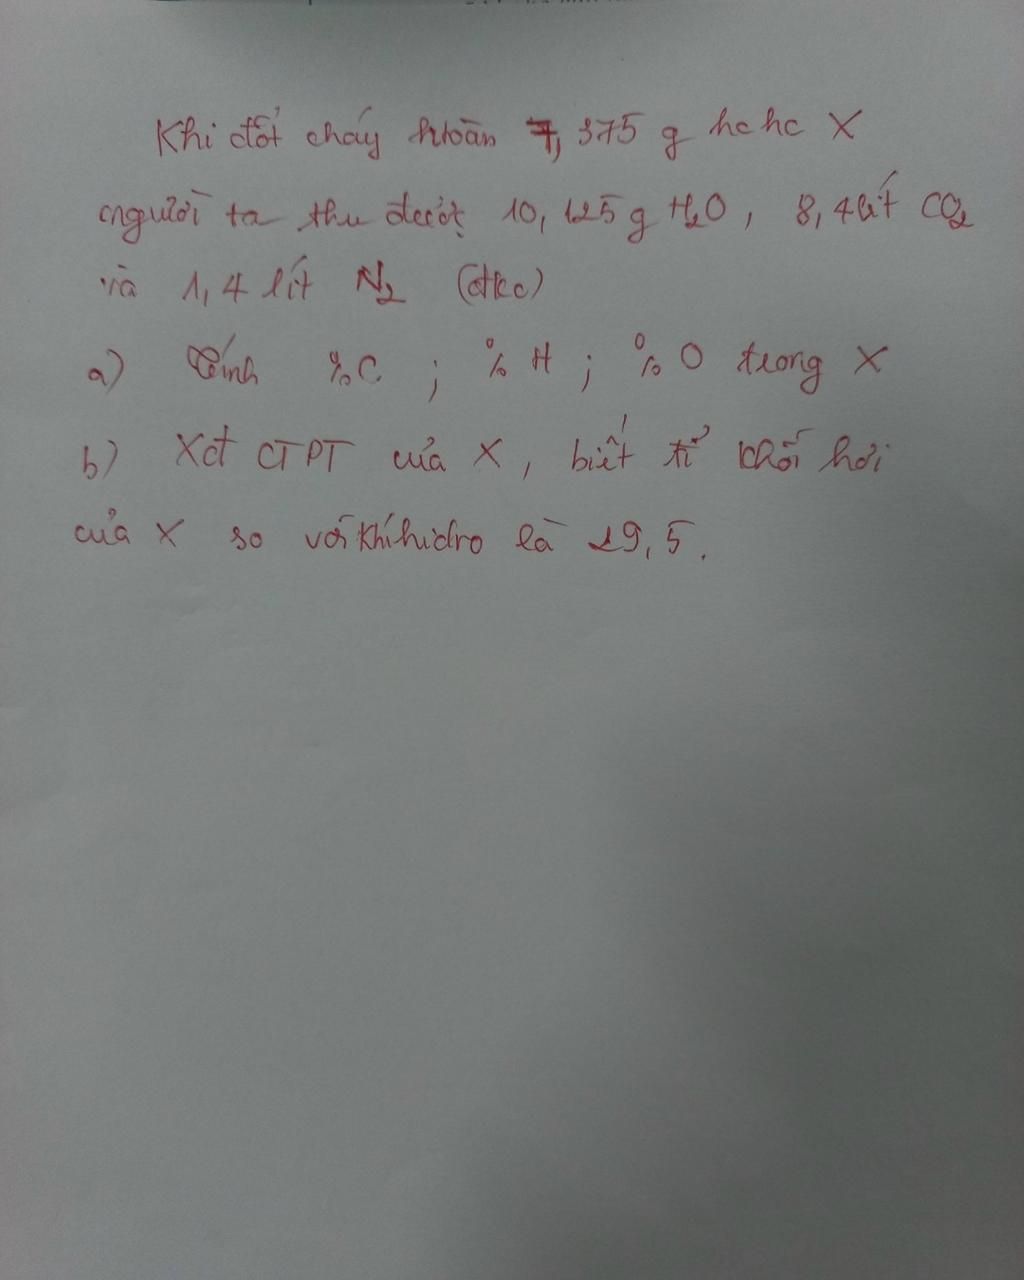 Khi đốt cháy htoàn 7,375 g hchc X
người ta thu được 10,125g H₂O, 8,4lít CO₂
và 1,4 lít N₂ (đkc)
a) Tính %C ; %H ; %O trong X
b) Xđ CTPT của X, biết tỉ khối hơi
của X so với khí hidro là 29,5.